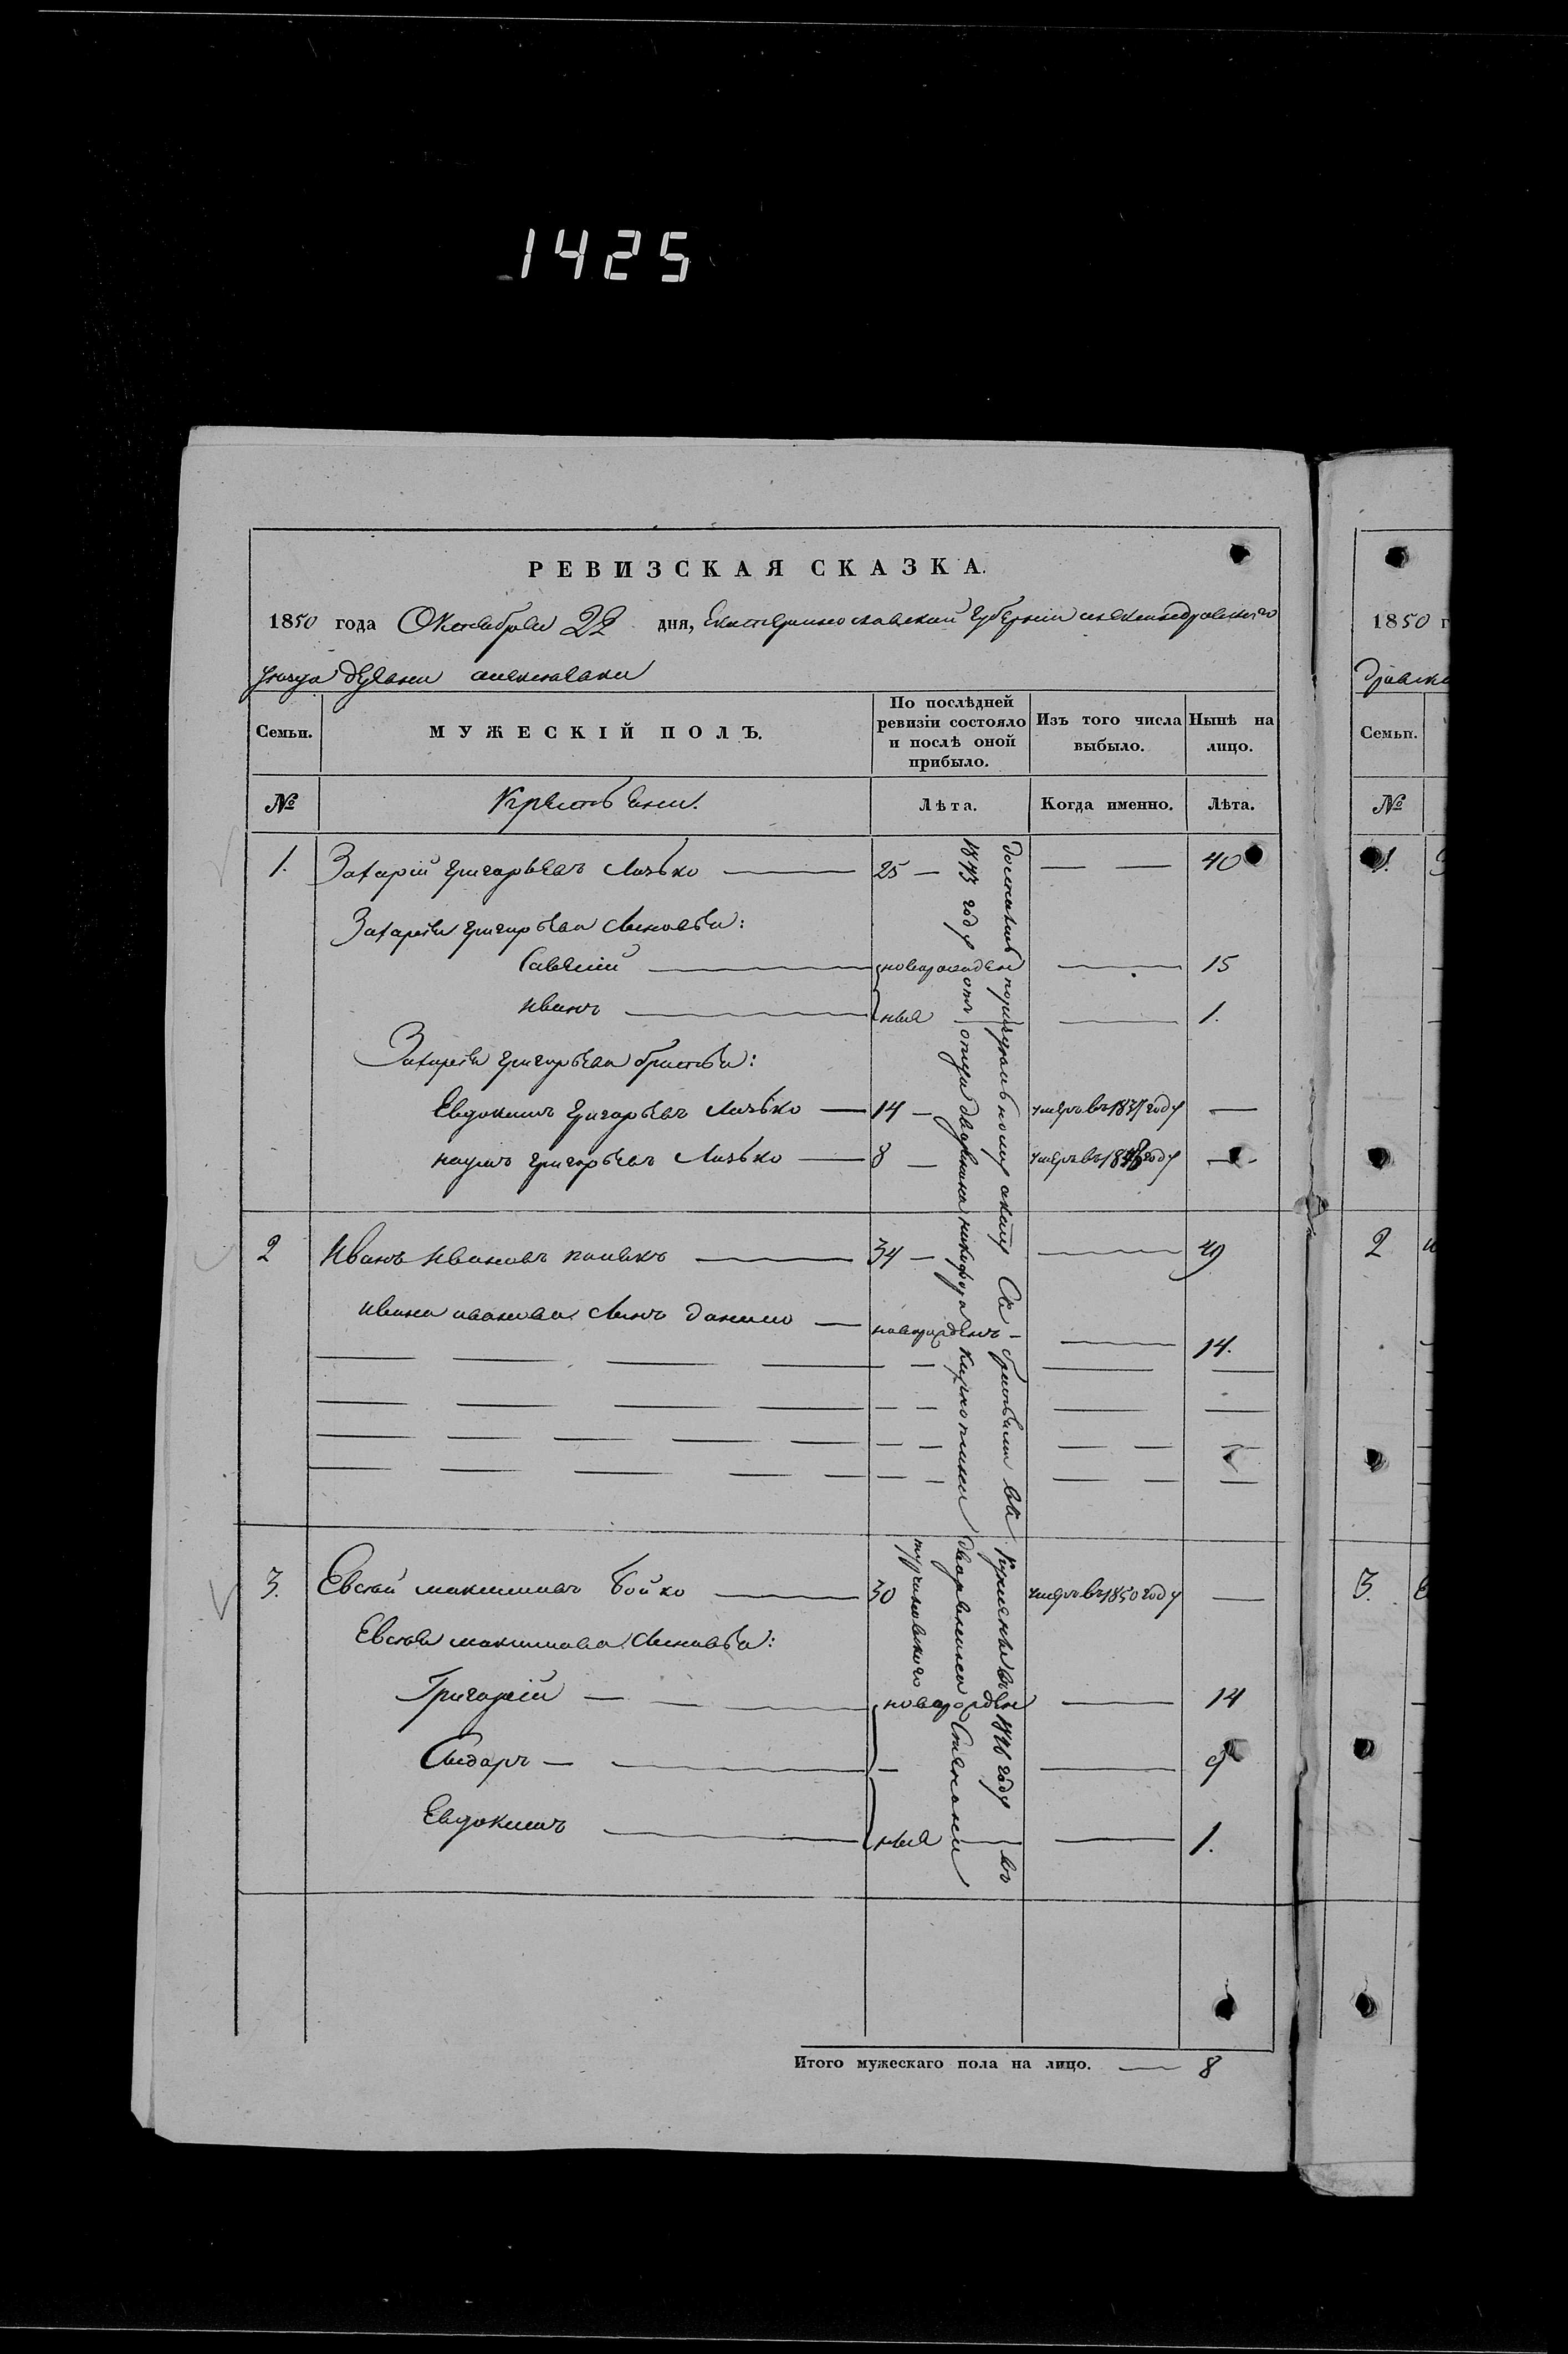 1425
РЕВИЗСКАЯ СКАЗКА.
1850 года Октября 22 дня, Екатеринославской Губернии александровского
уезда
Семьи.
МУЖЕСКІЙ ПОЛЪ.
По послѣдней ревизіи состояло и послѣ оной прибыло.
Изъ того числа выбыло.
Нынѣ на лицо.
№
Крестьяни.
Лѣта.
Когда именно.
Лѣта.
1. Захарій григорьевъ Лизько — 25 — — — 40
Захарія григорьева Сыновья:
Савелій — новорожден — 15
иванъ — ныя — 1.
Захарія григорьева братья:
Евдокимъ григорьевъ Лизько — 14 — умеръ въ 1837 году —
наумъ григорьевъ Лизько — 8 — умеръ въ 1848 году —
2 Иванъ Ивановъ — 34 — — 49
ивана иванова Сынъ данило — новорожденъ — — 14.
3. Евсей максимовъ Бойко — 30 умеръ въ 1850 году —
Евсея максимова Сыновья:
Григорій — — новорожден — 14
Сидоръ — — — — 9
Евдокимъ — ныя — — 1.
достались по акту Съ братьями
1843 году отъ отца дворянина
купленны въ 1846 году
дворянина Степана
Итого мужескаго пола на лицо. — 8
1850 г
Семьи.
№
1.
2
3.